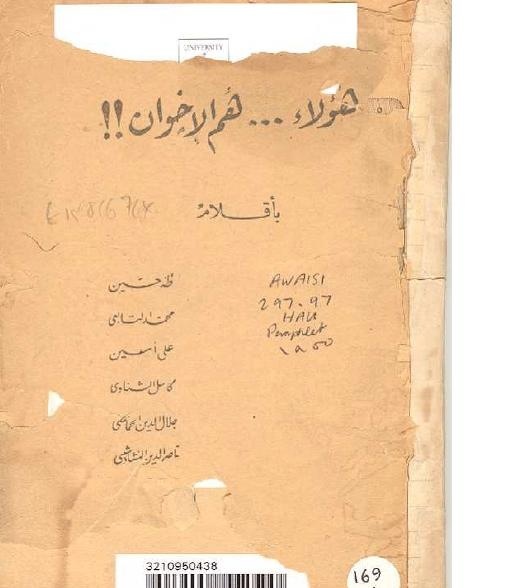 UNIVERSITY
هؤلاء ... هم الإخوان !!
بأقلام
طه حسين
محمد التابعي
علي أمين
كامل الشناوي
جلال الدين الحمامصي
ناصر الدين النشاشيبي
AWAISI
297.97
HAU
Pamphlet
3210950438
169